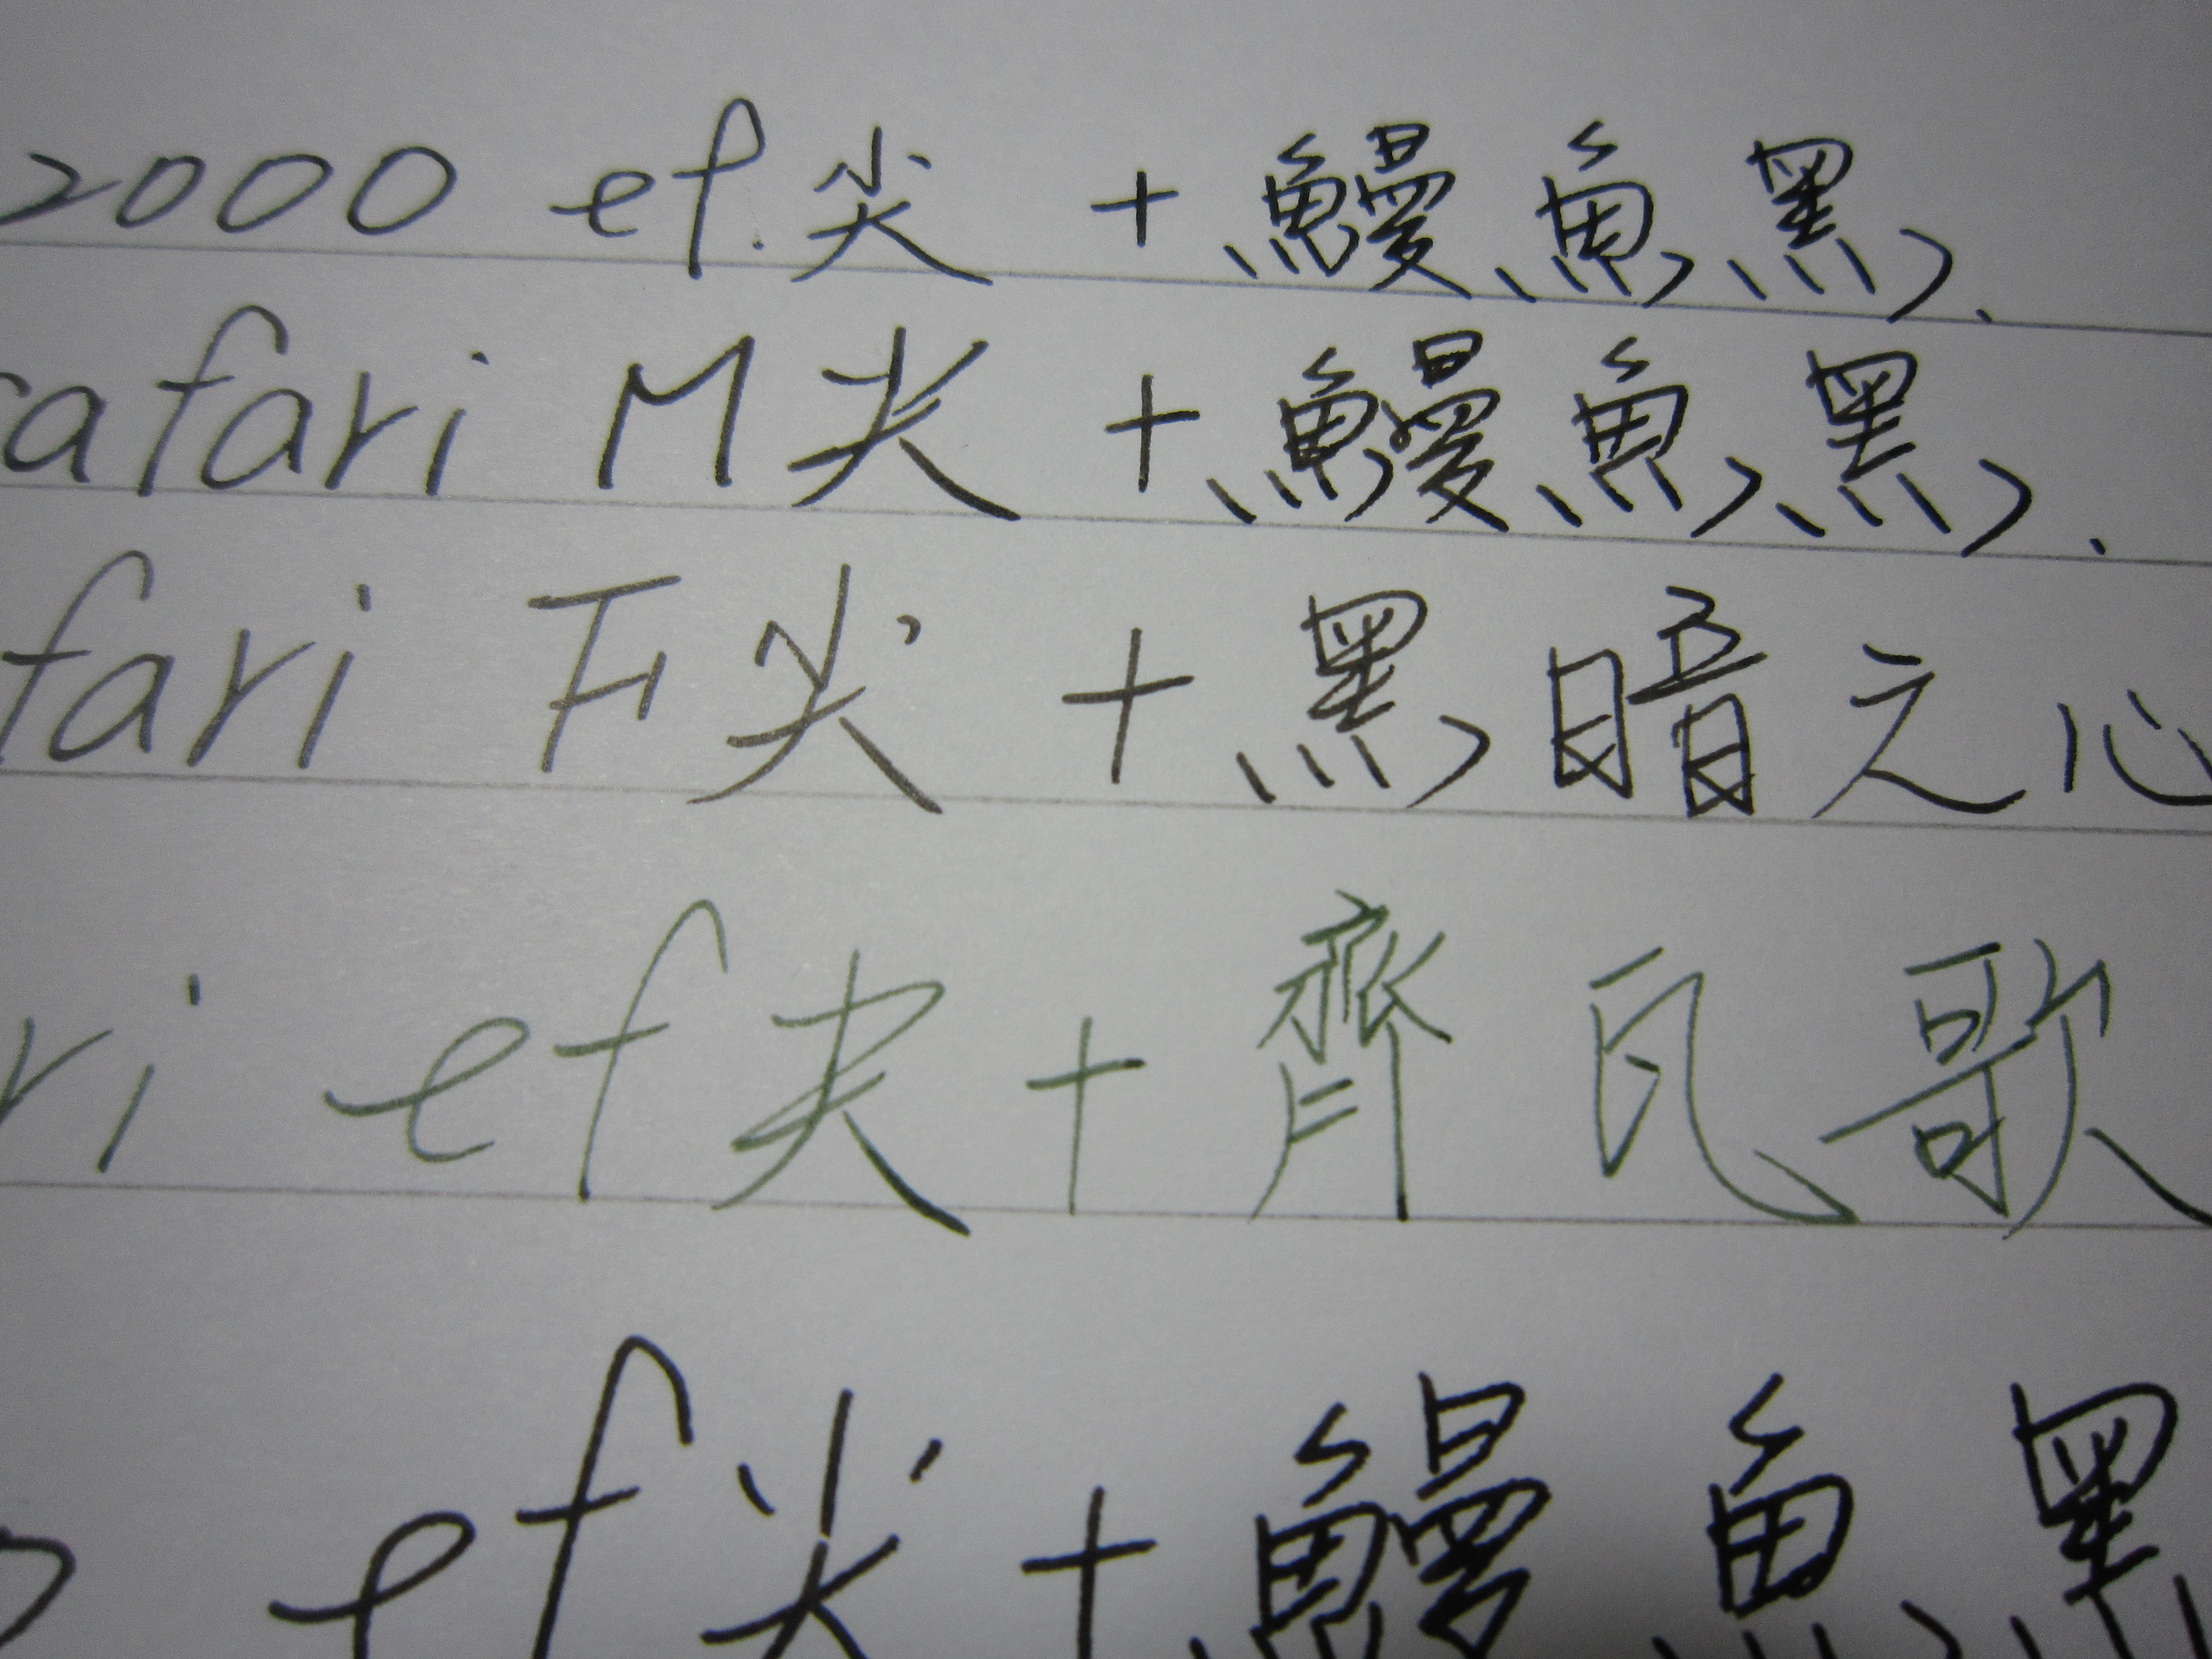 2000 ef.尖 + 鰻魚黑.
afari M尖 + 鰻魚黑.
fari F尖 + 黑暗之心
ri ef尖 + 齊瓦歌
ef尖 + 鰻魚黑